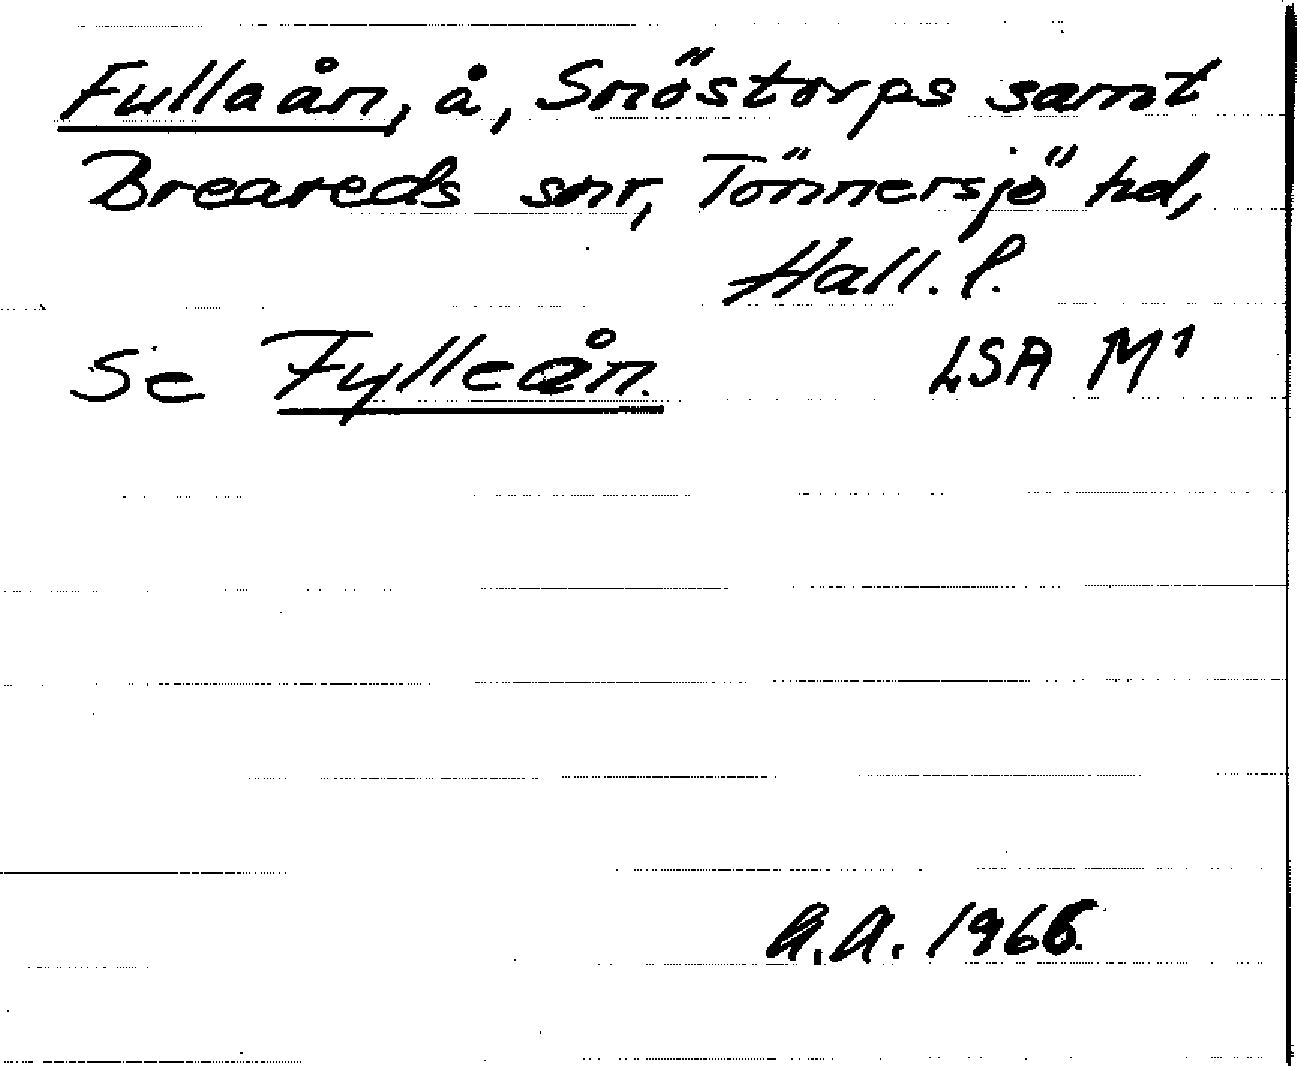 Fullaån, å, Snöstorps samt
Breareds snr, Tönnersjö hd,
Hall. l.
Se Fylleån. LSA M1
A.A. 1966.